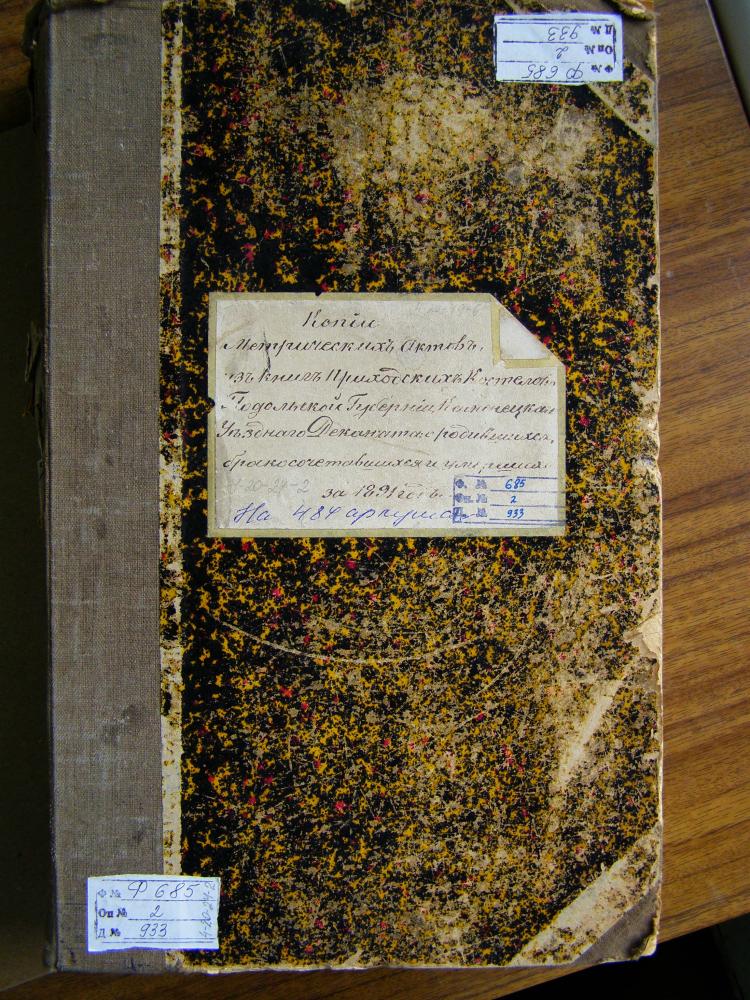 Ф № Ф 685
Оп № 2
Д № 933
Копіи
Метрическихъ Актовъ,
изъ книгъ Приходскихъ Костеловъ
Подольской Губерніи Каменецкаго
Уѣзднаго Деканата о родившихся,
бракосочетавшихся и умершихъ
за 1891 годъ.
На 484 аркушах
Ф. № 685
Оп. № 2
Д. № 933
Ф № Ф 685
Оп № 2
Д № 933